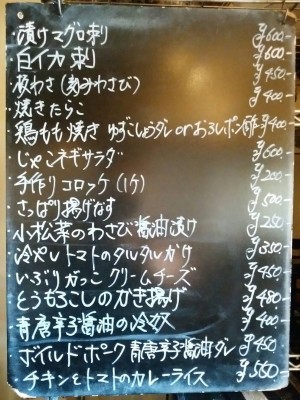 ・漬けマグロ刺 ¥600-
・白イカ刺 ¥600-
・板わさ(刻みわさび) ¥450-
・焼きたらこ ¥400-
・鶏もも焼き ゆずこしょうダレ orおろしポン酢 ¥400-
・じゃこネギサラダ ¥600-
・手作りコロッケ(1ケ) ¥200-
・さっぱり揚げなす ¥500-
・小松菜のわさび醤油漬け ¥250-
・冷やしトマトのタルタルかけ ¥350-
・いぶりがっこクリームチーズ ¥450-
・とうもろこしのかき揚げ ¥480-
・青唐辛子醤油の冷奴 ¥400-
・ボイルドポーク青唐辛子醤油ダレ ¥450-
・チキンとトマトのカレーライス ¥550-